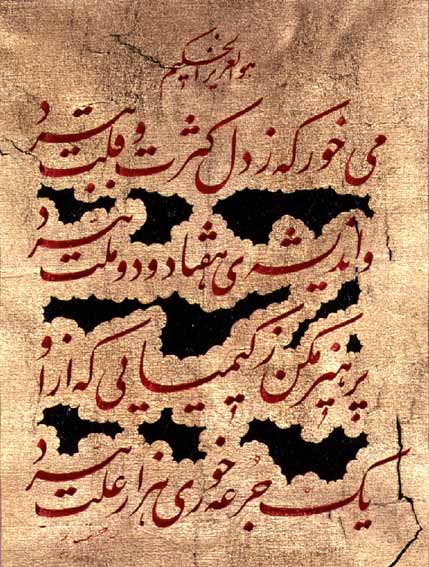 هو العزیز الحکیم
می خور که ز دل کثرت و قلت ببرد
و اندیشه‌ی هفتاد و دو ملت ببرد
پرهیز مکن ز کیمیایی که ازو
یک جرعه خوری هزار علت ببرد